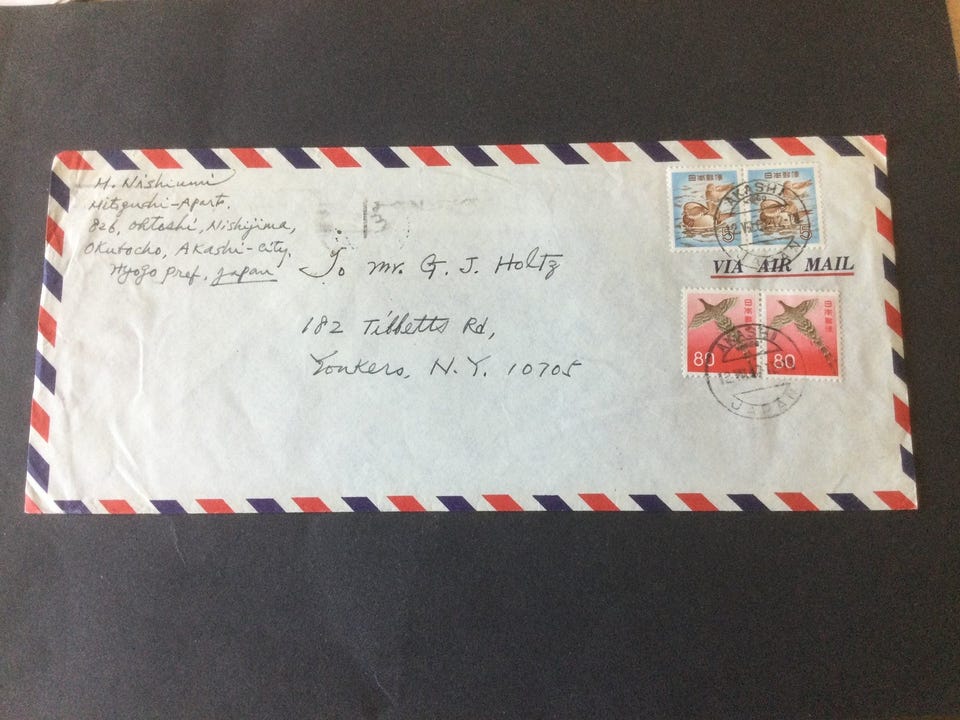 H. Nishiumi
Mitsguchi-Apart.
826, Ohtoshi, Nishijima,
Okubocho, Akashi-city,
Hyogo pref, Japan
To Mr. G. J. Holtz
182 Tibbetts Rd,
Yonkers, N.Y. 10705
日本郵便
日本郵便
AKASHI
VIA AIR MAIL
日本郵便
日本郵便
80
80
AKASHI
JAPAN